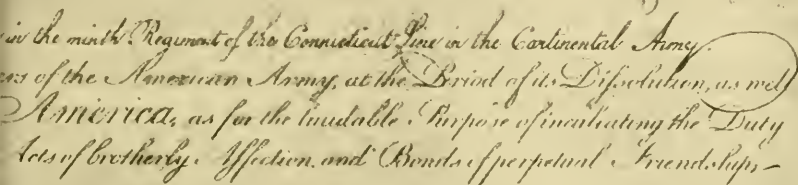 in the ninth Regiment of the Connecticut Line in the Continental Army.
ers of the American Army, at the Period of its Dissolution, as well
America, as for the laudable Purpose of inculcating the Duty
Acts of brotherly Affection, and Bonds of perpetual Friendship —